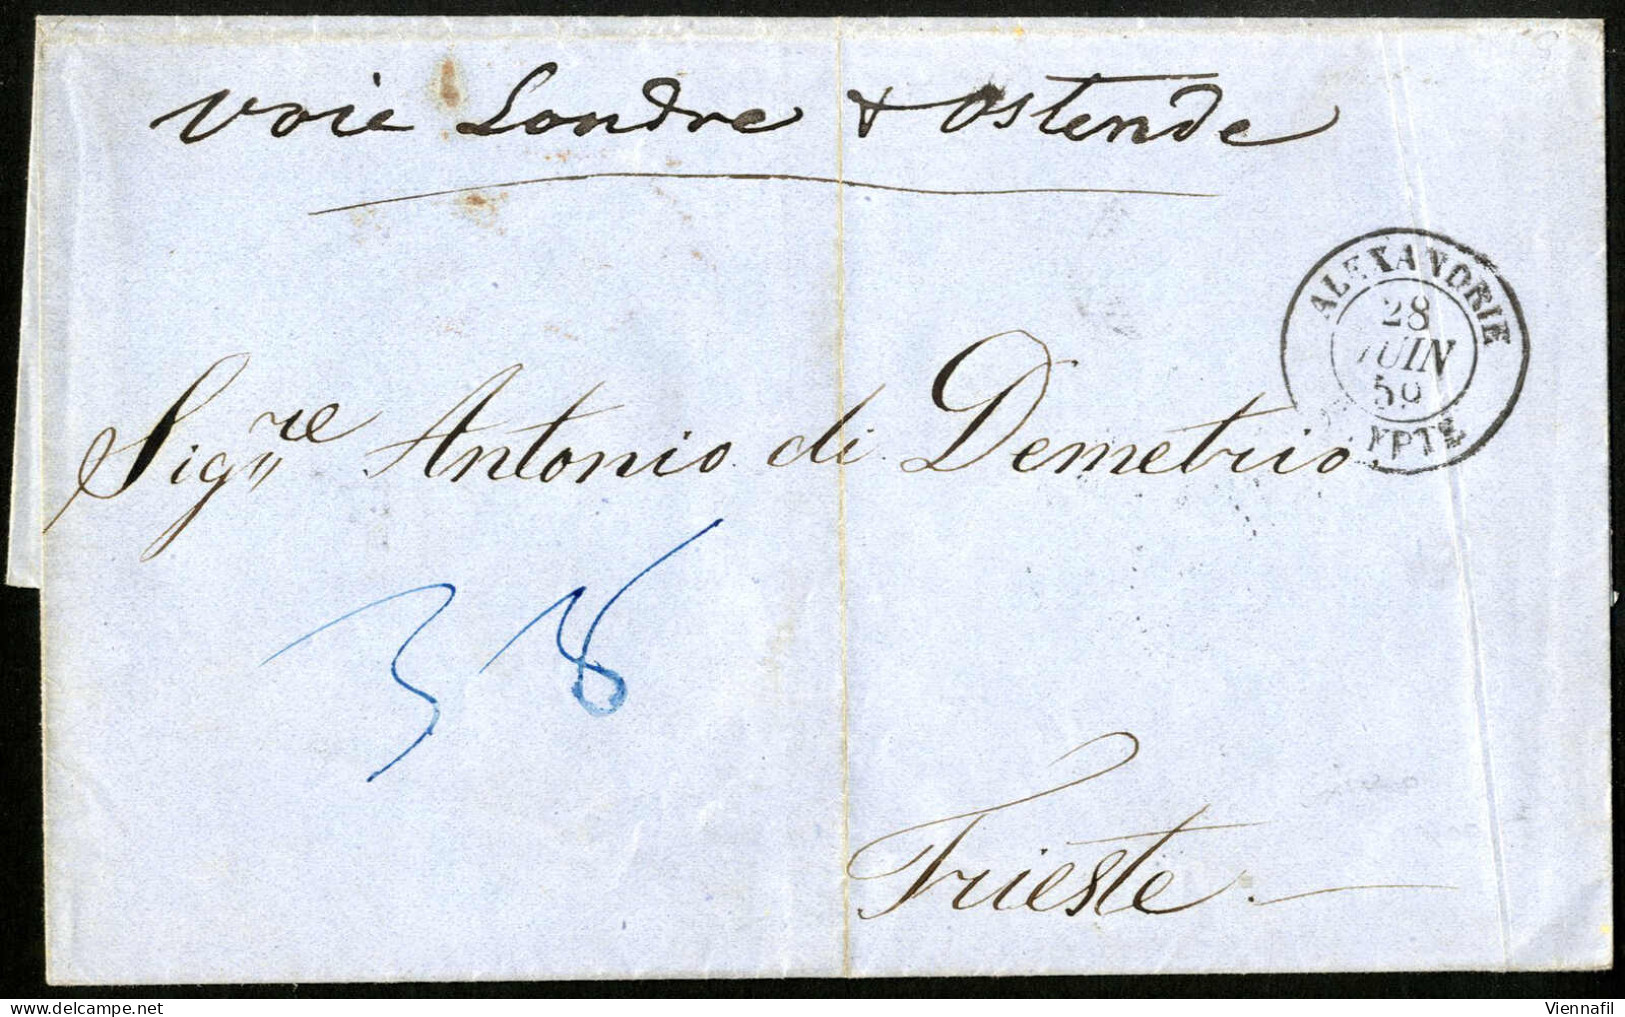 voie Londre & Ostende
ALEXANDRIE
28
JUIN
59
Sig.re Antonio di Demetrio
38
Trieste.
Viennafil